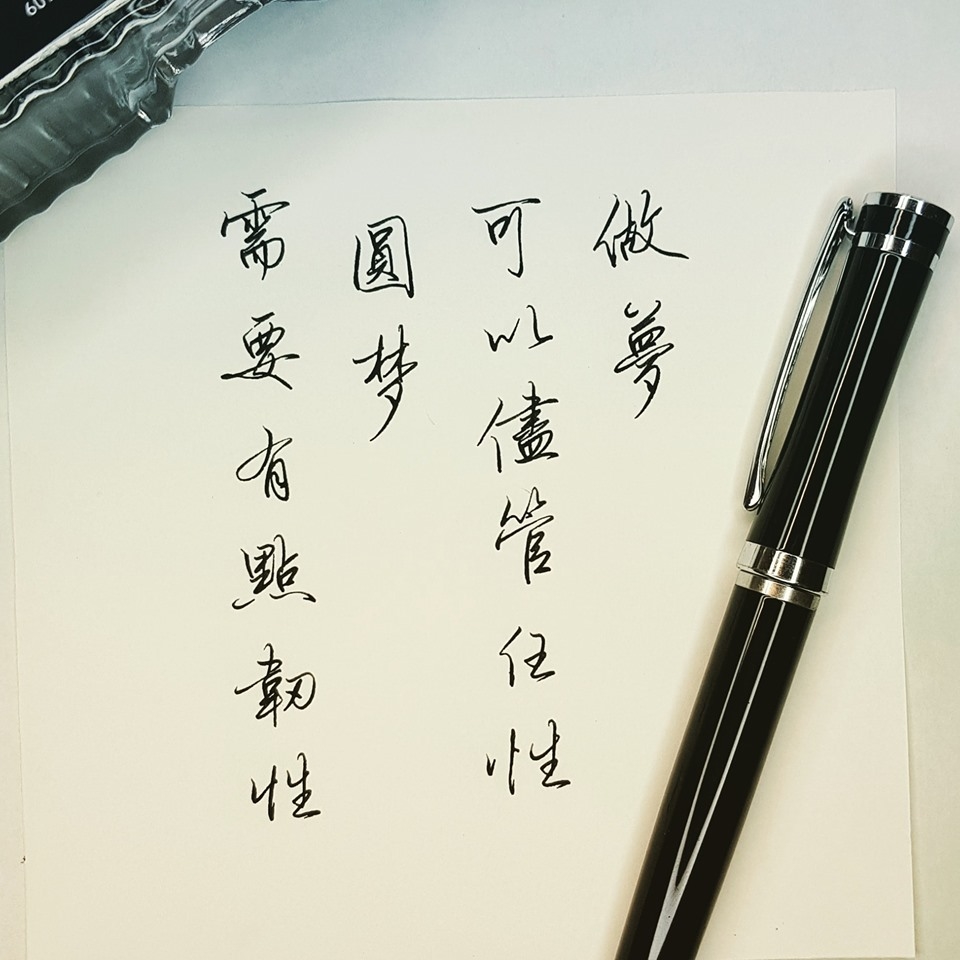 做夢
可以儘管任性
圓梦
需要有點韌性